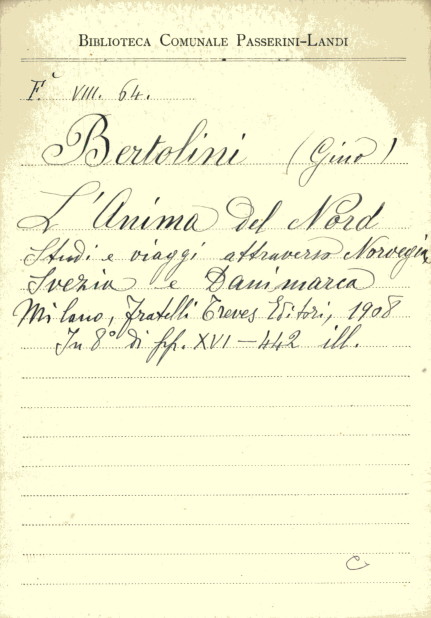 BIBLIOTECA COMUNALE PASSERINI-LANDI
F.` VIII. 64.
Bertolini (Gino)
L'Anima del Nord
Studi e viaggi attraverso Norvegia,
Svezia e Danimarca
Milano, Fratelli Treves Editori, 1908
In 8° di pp. XVI-442 ill.
C